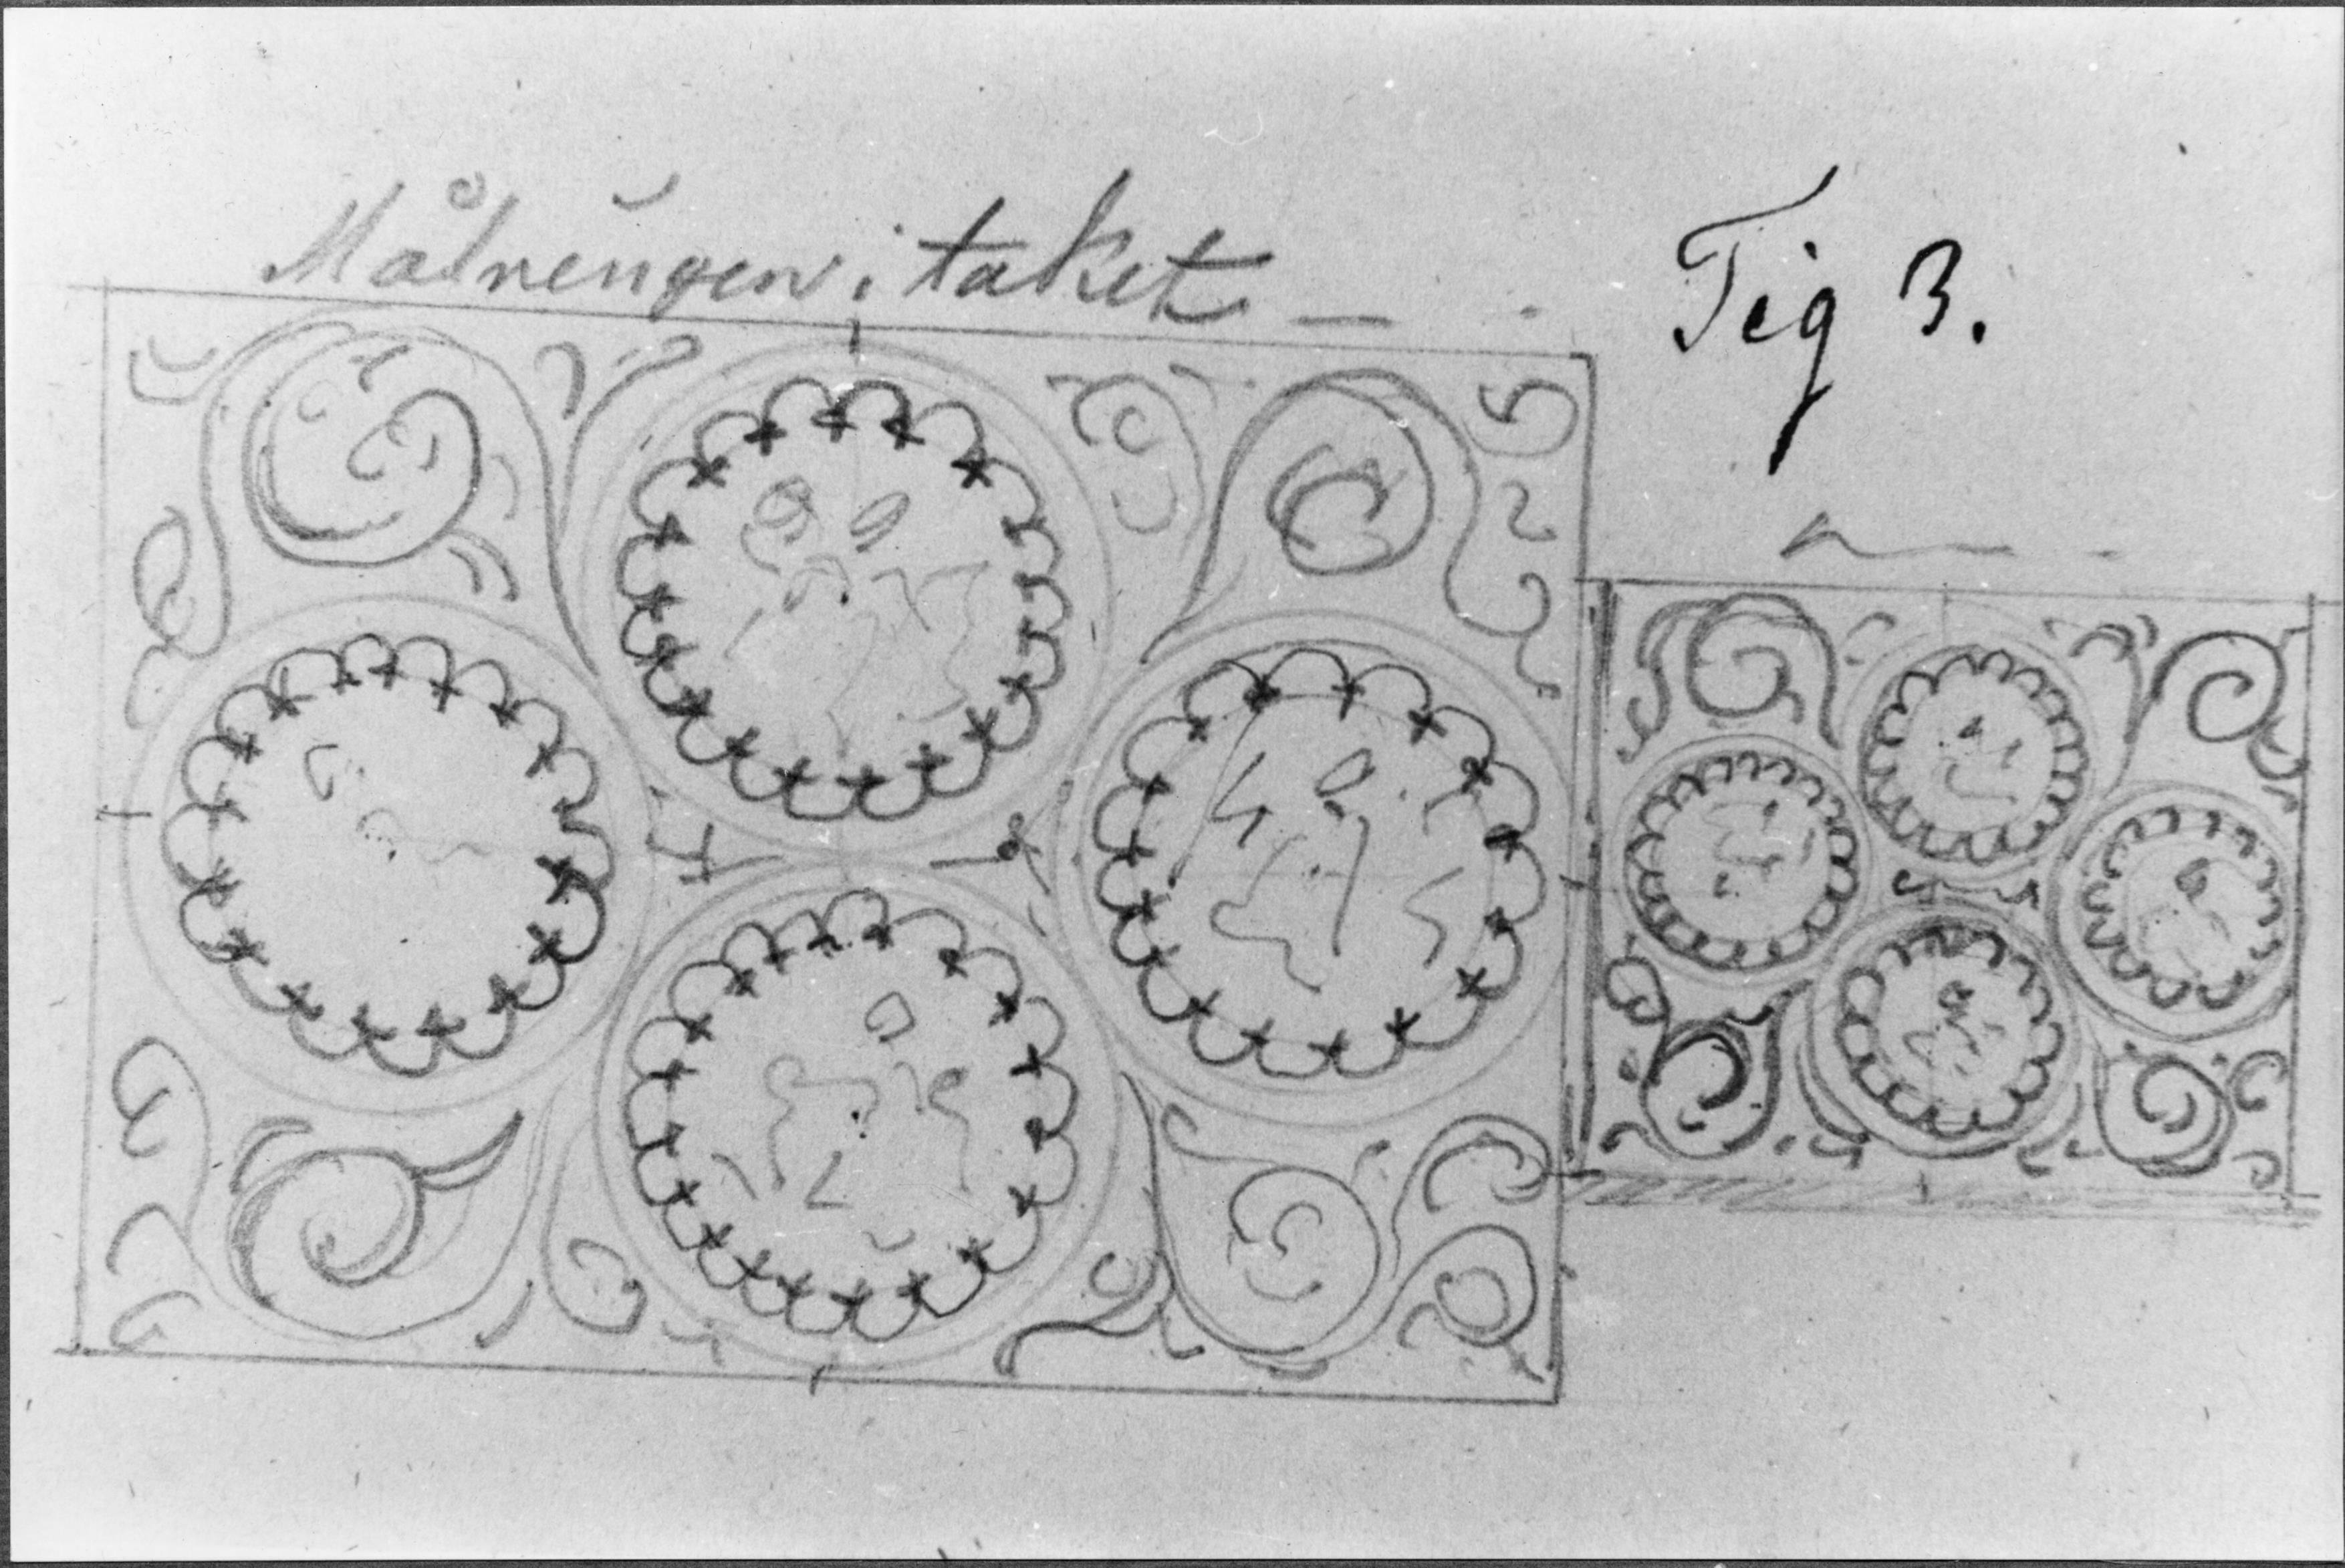 Målningen i taket —
Fig 3.